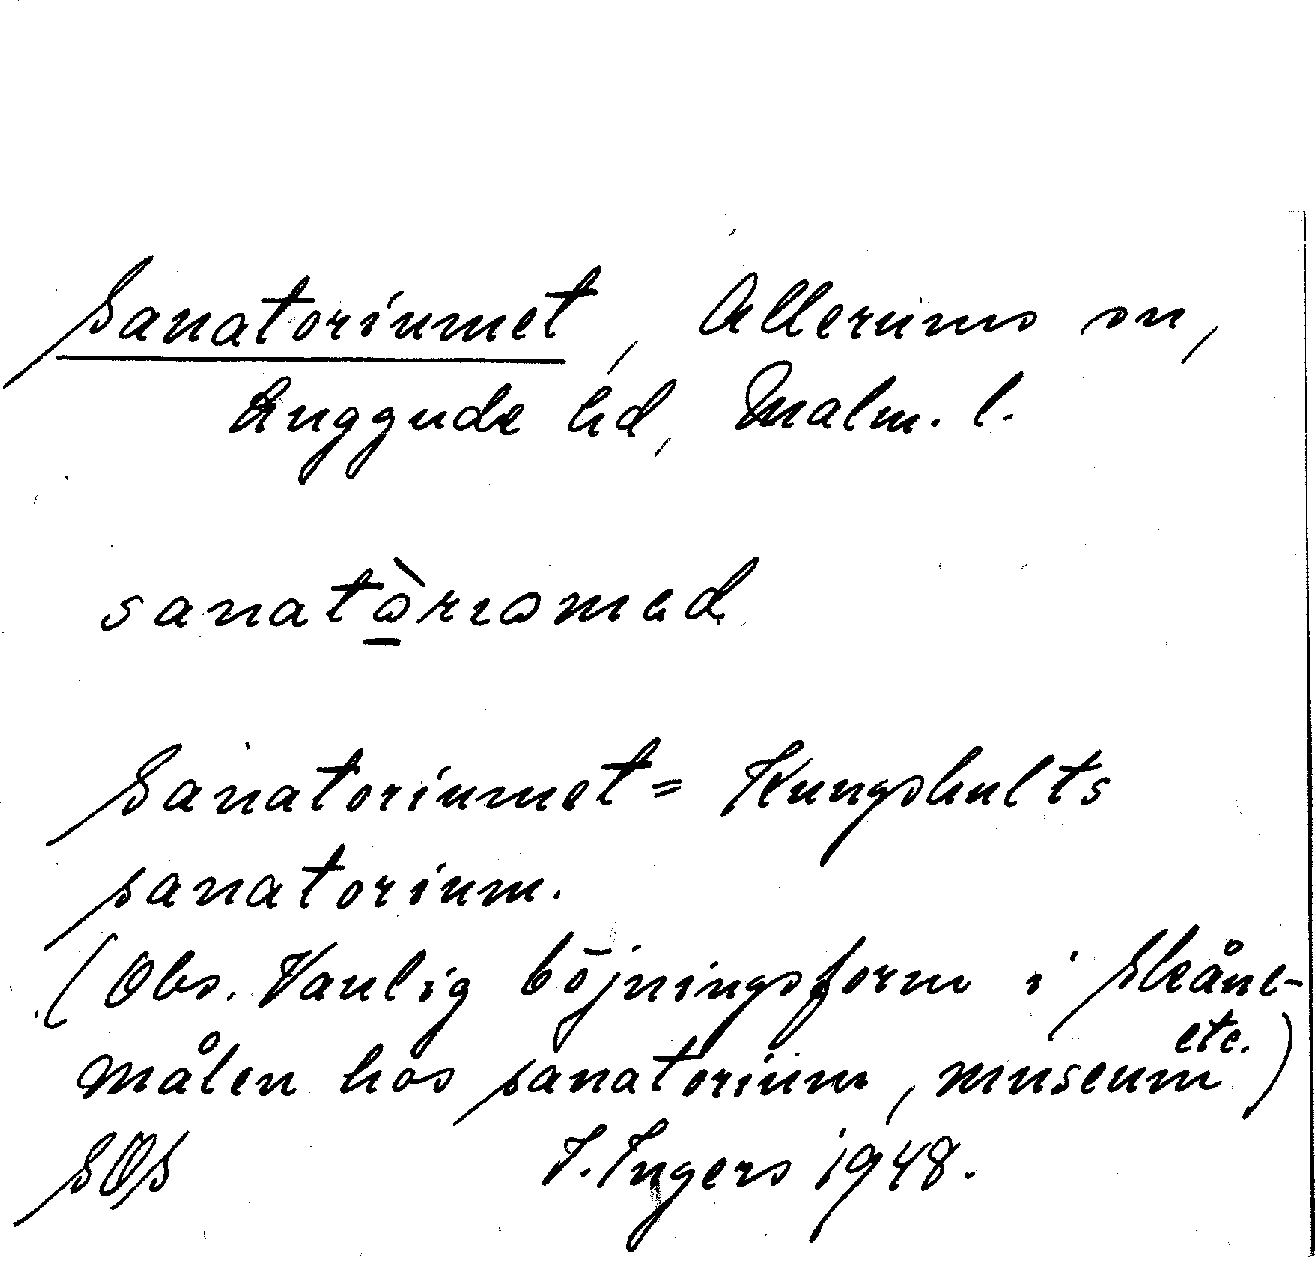 Sanatoriumet, Allerums sn,
Luggude hd, Malm. l.
sanatòrıɷmed
Sanatoriumet = Kungshults
sanatorium.
(Obs. Vanlig böjningsform i Skåne-
målen hos sanatorium, museum etc.)
SOS I. Ingers 1948.